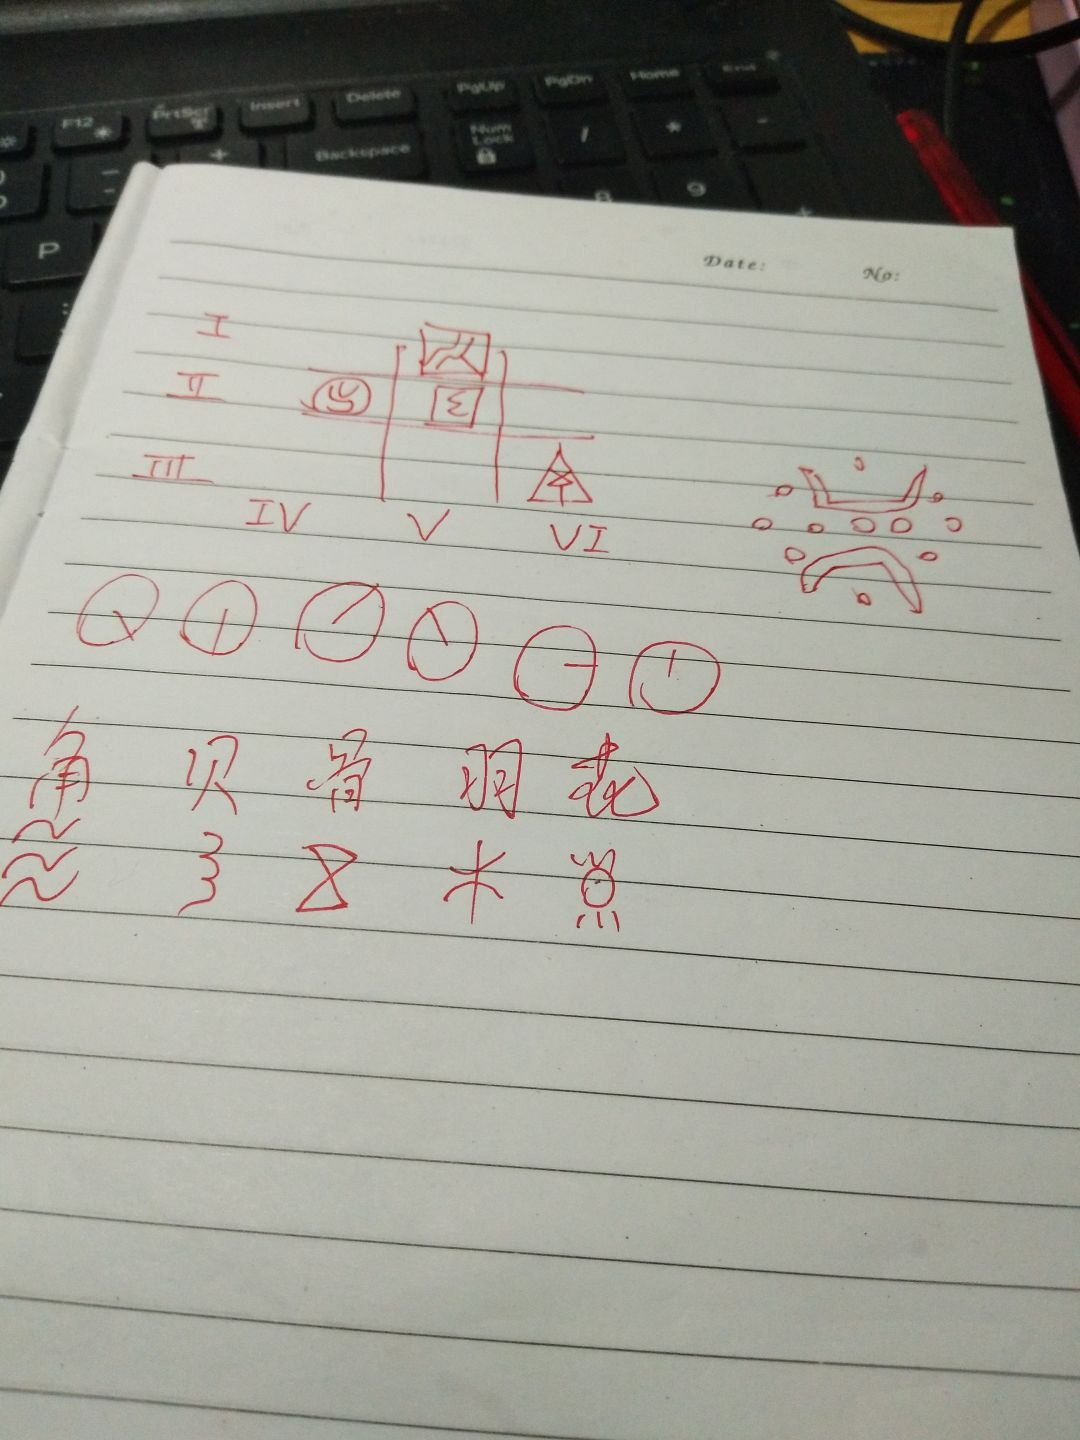 F12 PrtScr Insert Delete PgUp PgDn Home End
Backspace Num Lock / * -
8 9 +
P
Date: No:
I
II
III
IV V VI
角 贝 骨 羽 花